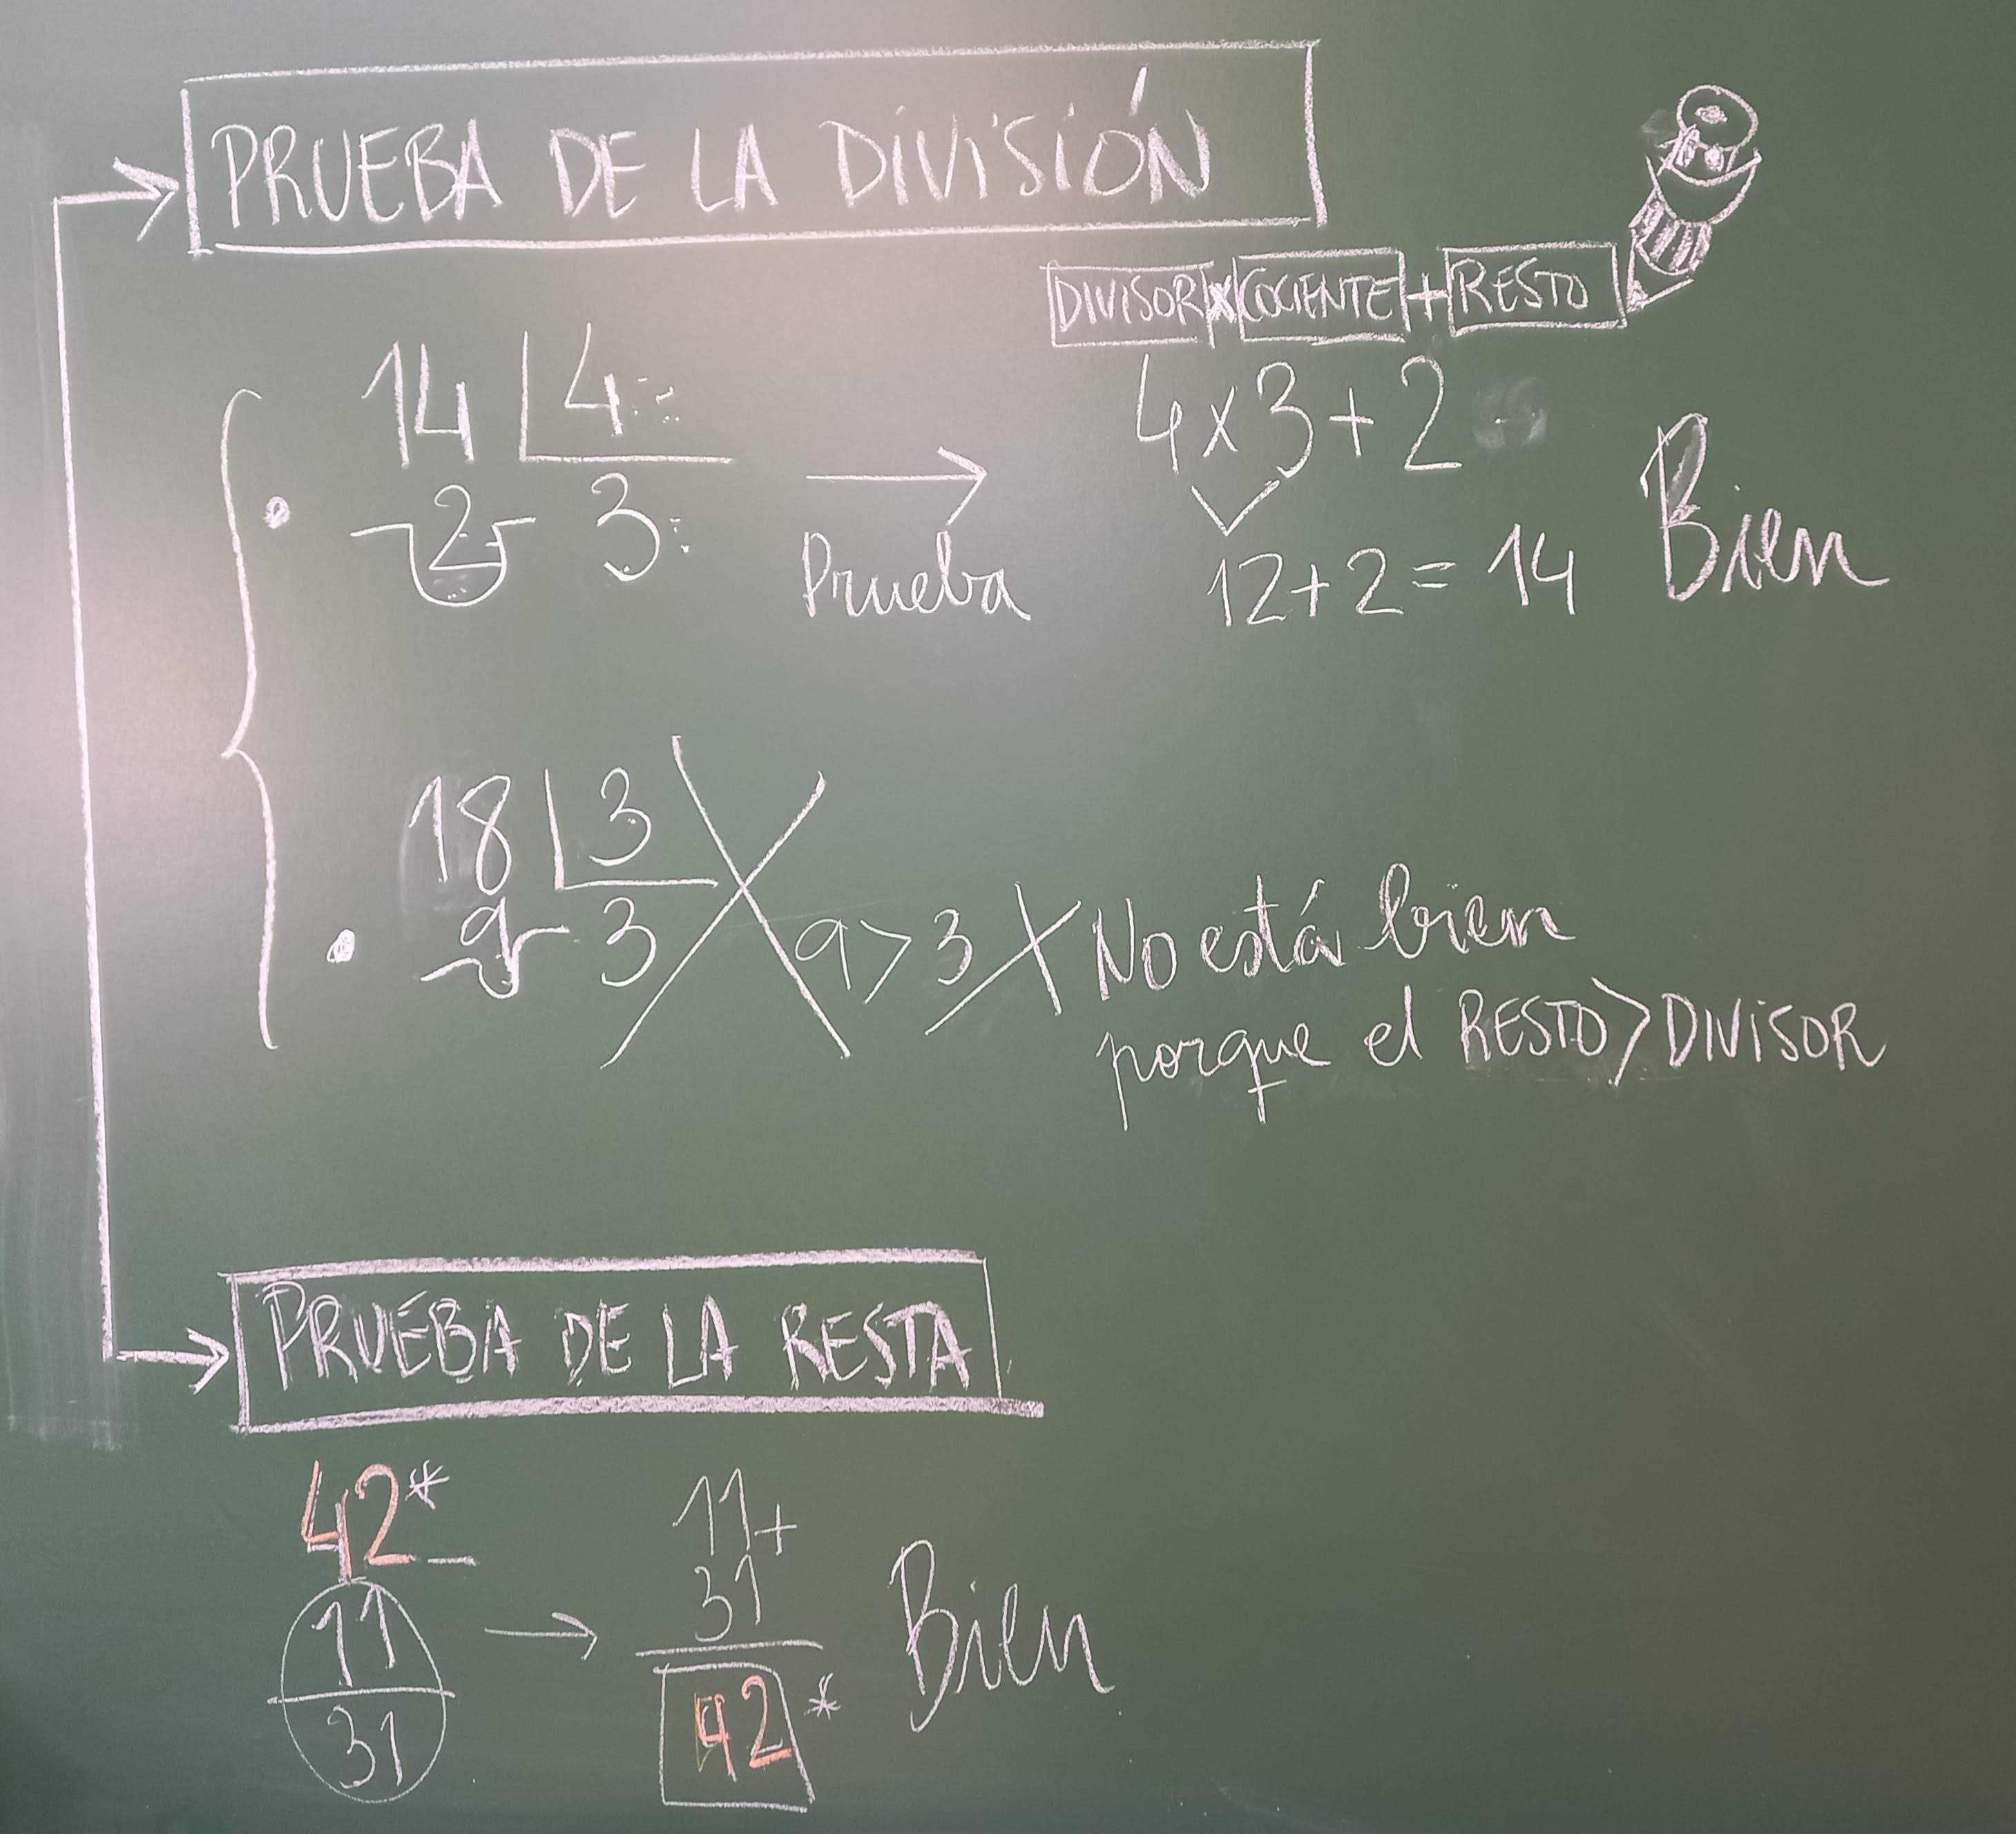 PRUEBA DE LA DIVISIÓN
DIVISOR x COCIENTE + RESTO
14 4
2 3
Prueba
4x3+2
12+2=14
Bien
18 3
9 3
9>3 X No está bien
porque el RESTO>DIVISOR
PRUEBA DE LA RESTA
42* -
11
31
11+
31
42 *
Bien